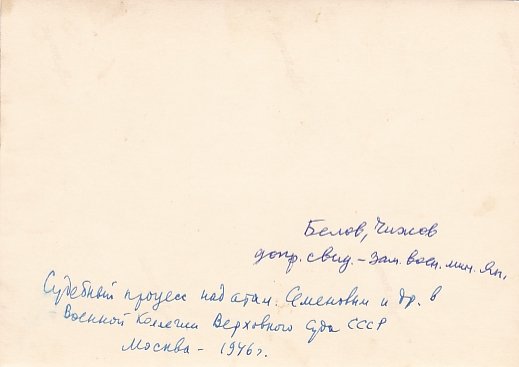 Белов, Чижов
допр. свид. - Зам. воен. мин. Яп.
Судебный процесс над атам. Семеновым и др. в
Военной Коллегии Верховного Суда СССР
Москва - 1946 г.